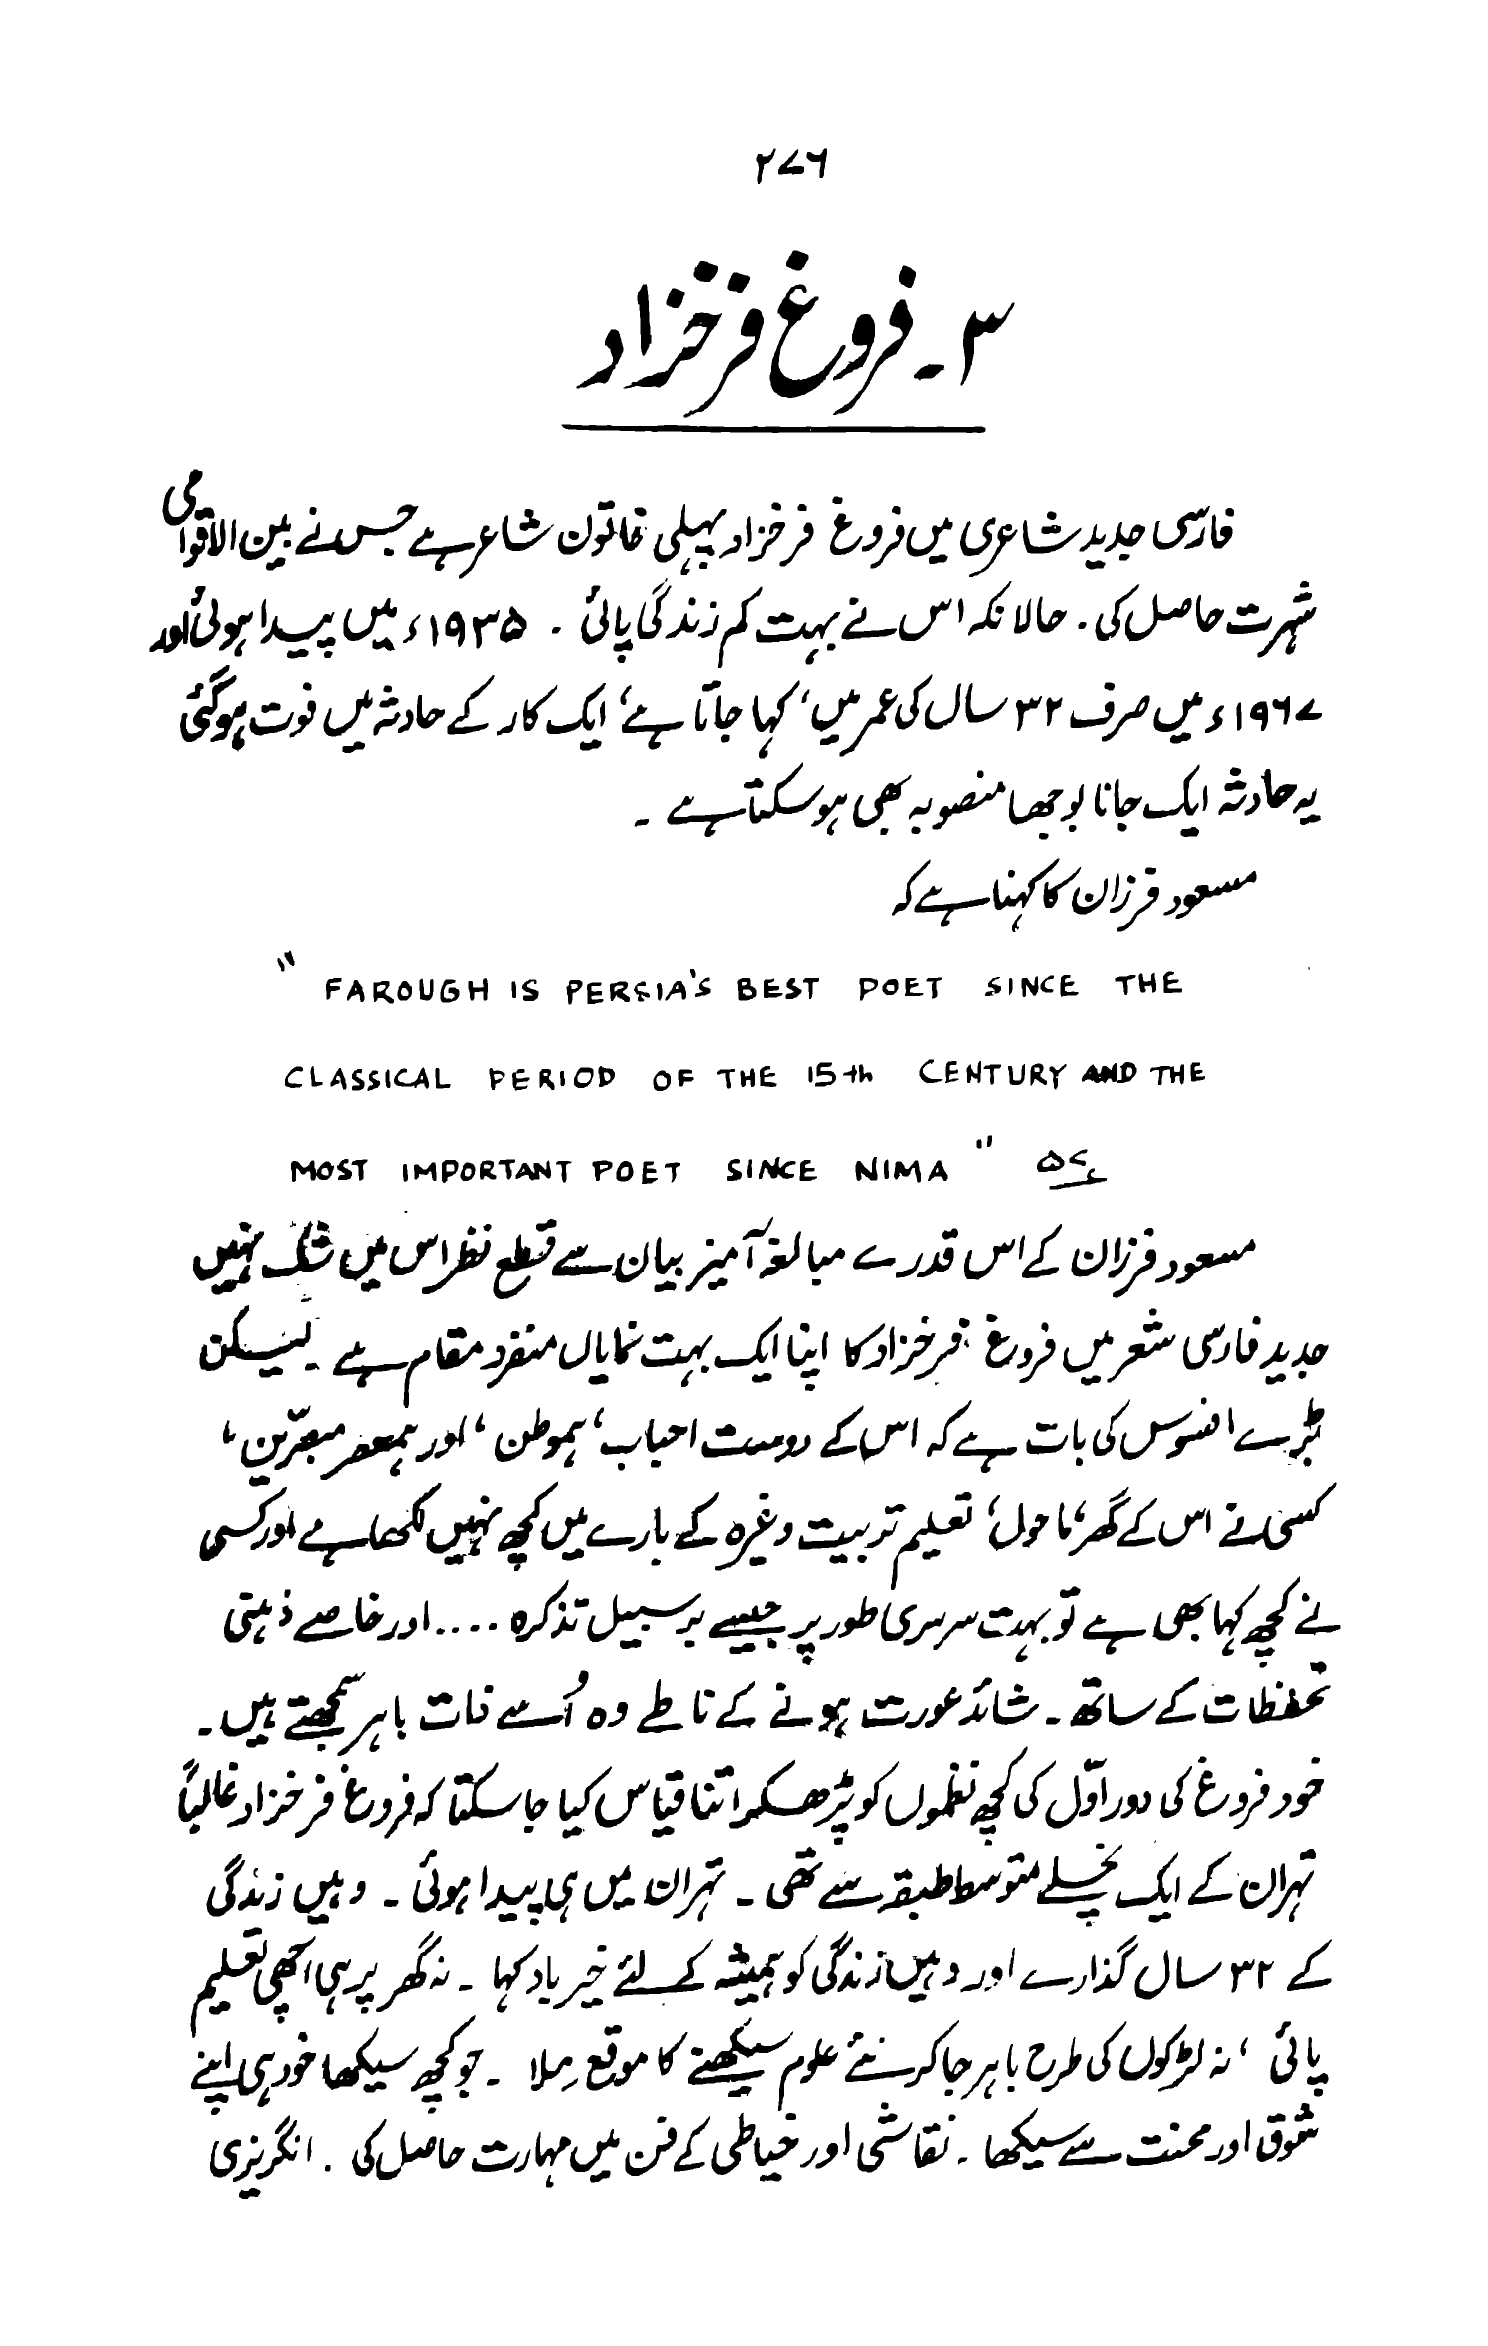 ۲۷۶
۳۔ فروغ فرخزاد
فارسی جدید شاعری میں فروغ فرخزاد پہلی خاتون شاعر ہے جس نے بین الاقوامی
شہرت حاصل کی۔ حالانکہ اس نے بہت کم زندگی پائی ۔ ۱۹۳۵ء میں پیدا ہوئی اور
۱۹۶۷ء میں صرف ۳۲ سال کی عمر میں، کہا جاتا ہے، ایک کار کے حادثہ میں فوت ہوگئی
یہ حادثہ ایک جانا بوجھا منصوبہ بھی ہوسکتا ہے ۔
مسعود فرزان کا کہنا ہے کہ
" FAROUGH IS PERSIA'S BEST POET SINCE THE
CLASSICAL PERIOD OF THE 15th CENTURY AND THE
MOST IMPORTANT POET SINCE NIMA " ۵۷
مسعود فرزان کے اس قدرے مبالغہ آمیز بیان سے قطع نظر اس میں شک نہیں
جدید فارسی شعر میں فروغ فرخزاد کا اپنا ایک بہت نمایاں منفرد مقام ہے ۔ لیکن
بڑے افسوس کی بات ہے کہ اس کے دوست احباب، ہموطن، اور ہمعصر مبصّرین،
کسی نے اس کے گھر، ماحول، تعلیم تربیت وغیرہ کے بارے میں کچھ نہیں لکھا ہے اور کسی
نے کچھ کہا بھی ہے تو بہت سرسری طور پر جیسے برسبیل تذکرہ .... اور خاصے ذہنی
تحفظات کے ساتھ ۔ شائد عورت ہونے کے ناطے وہ اُسے ذات باہر سمجھتے ہیں ۔
خود فروغ کی دور اوّل کی کچھ نظموں کو پڑھ کر اتنا قیاس کیا جا سکتا کہ فروغ فرخزاد غالباً
تہران کے ایک نچلے متوسط طبقہ سے تھی ۔ تہران میں ہی پیدا ہوئی ۔ وہیں زندگی
کے ۳۲ سال گذارے اور وہیں زندگی کو ہمیشہ کے لئے خیرباد کہا ۔ نہ گھر پر ہی اچھی تعلیم
پائی ، نہ لڑکوں کی طرح باہر جا کر نئے علوم سیکھنے کا موقع مِلا ۔ جو کچھ سیکھا خود ہی اپنے
شوق اور محنت سے سیکھا ۔ نقاشی اور خیاطی کے فن میں مہارت حاصل کی ۔ انگریزی